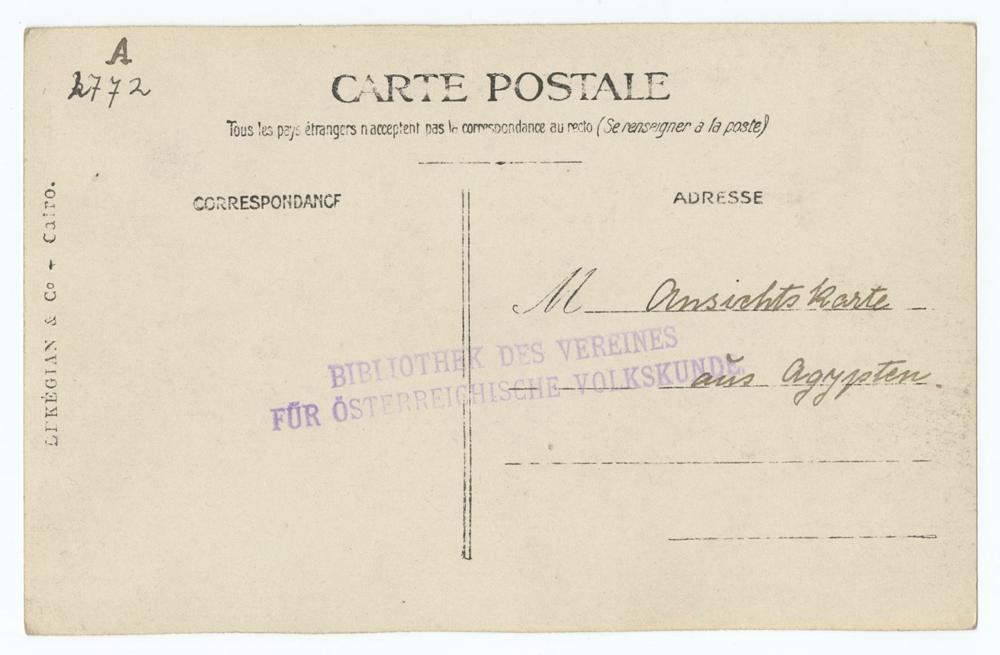 A
2772
CARTE POSTALE
Tous les pays étrangers n'acceptent pas la correspondance au recto (Se renseigner à la poste)
CORRESPONDANCE
ADRESSE
LEKÉGIAN & Co - Cairo.
M Ansichtskarte
aus Ägypten.
BIBLIOTHEK DES VEREINES
FÜR ÖSTERREICHISCHE VOLKSKUNDE